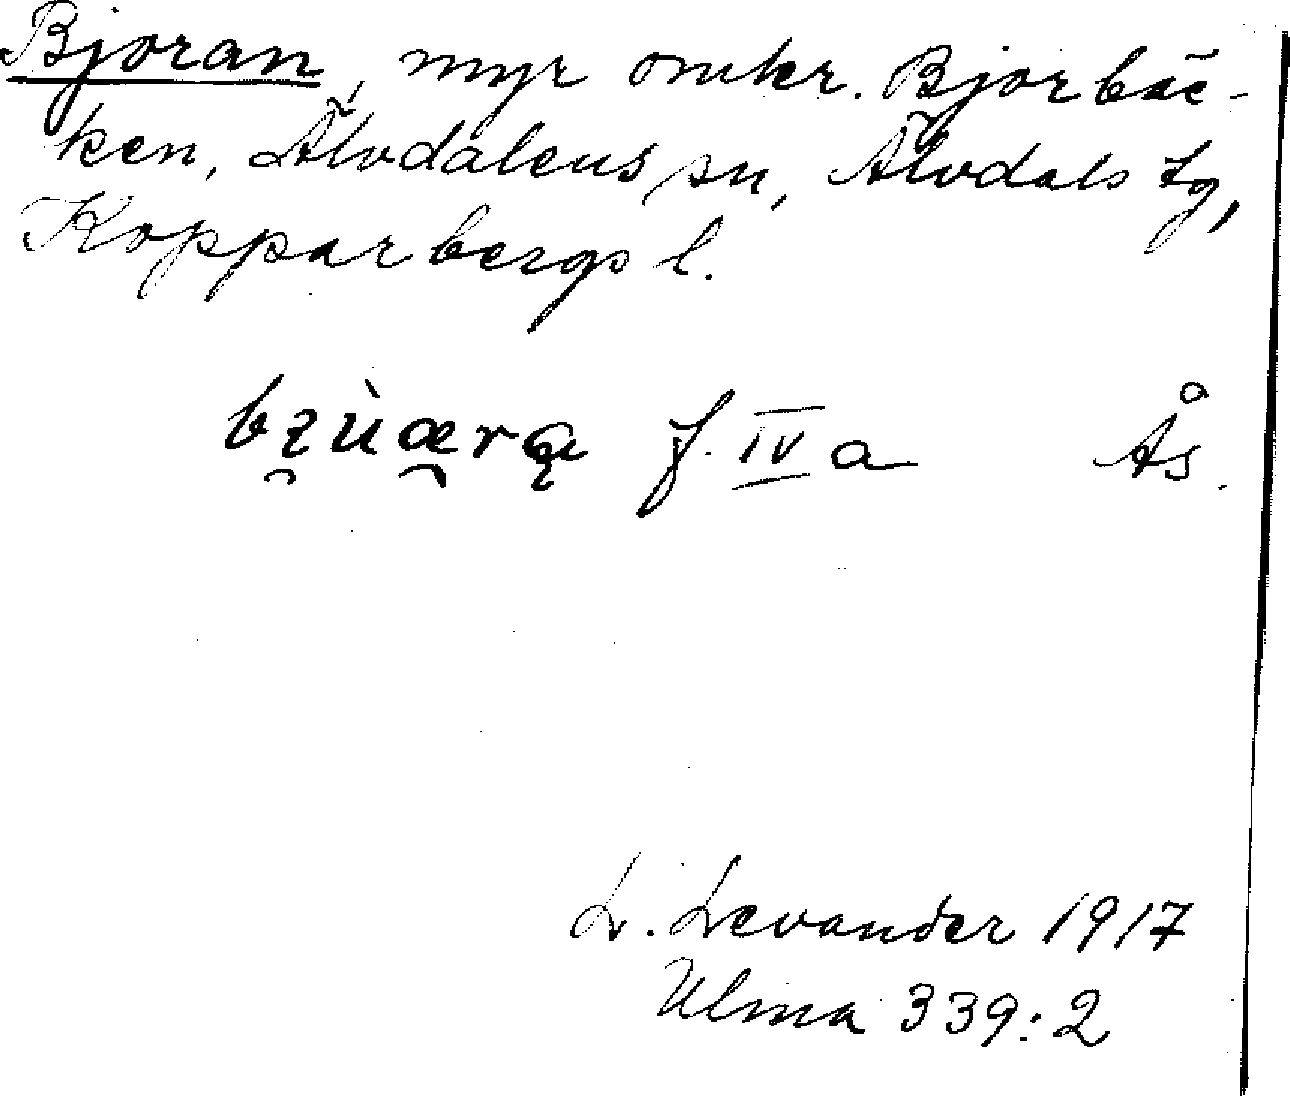 Bjoran, myr omkr. Bjorbäc-
ken, Älvdalens sn, Älvdals tg,
Kopparbergs l.
f. IV a Ås.
L. Levander 1917
Ulma 339:2